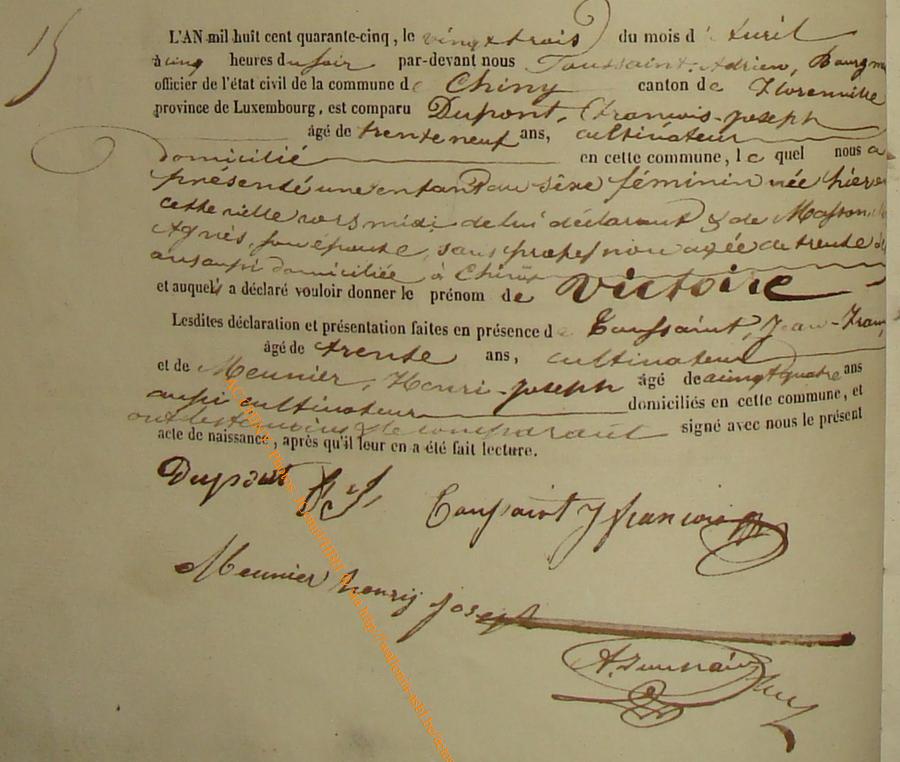 15
L'AN mil huit cent quarante-cinq, le vingt trois du mois d'Avril
à cinq heures du soir par-devant nous Toussaint, Adrien, Bourgm
officier de l'état civil de la commune de Chiny canton de Florenville
province de Luxembourg, est comparu Dupont, François-Joseph
âgé de trente neuf ans, cultivateur
domicilié en cette commune, le quel nous a
présenté une enfant du sèxe féminin née hier en
cette ville vers midi de lui déclarant & de Masson,
Agnès, son épouse, sans profession agée de trente
ans aussi domiciliée à Chiny
et auquel a déclaré vouloir donner le prénom de Victoire
Lesdites déclaration et présentation faites en présence de Toussaint, Jean-Fran
âgé de trente ans, cultivateur
et de Meunier, Henri-Joseph âgé de vingt quatre ans
aussi cultivateur domiciliés en cette commune, et
ont les témoins & le comparant signé avec nous le présent
acte de naissance, après qu'il leur en a été fait lecture.
Dupont
Toussaint J françois
Meunier henry joseph
A. Toussaint